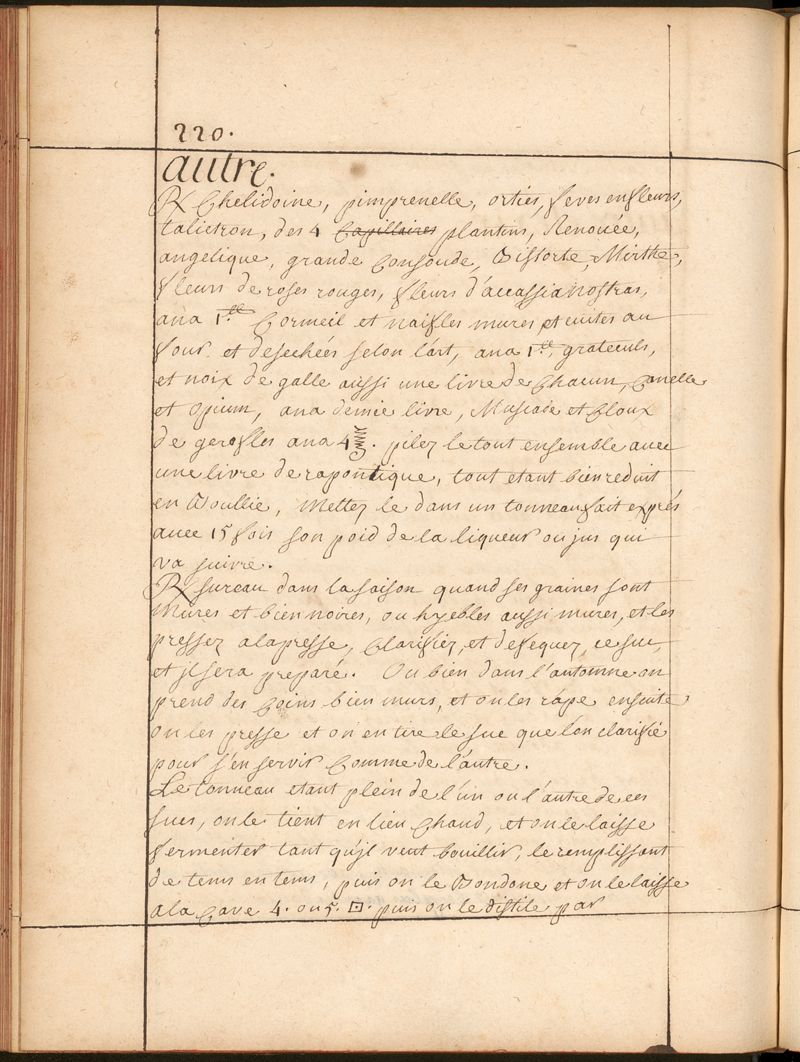 220.
autre.
℞ Chelidoine, pimprenelle, orties, feves en fleurs,
talictron, des 4 Capillaires plantins, Renouée,
angelique, grande Consoude, Bistorte, Mirthe,
fleurs de roses rouges, fleurs d'accassia nostras,
ana 1.ll Cormeil et naifles mures et cuites au
four et desechées selon l'art, ana 1.ll grateculs,
et noix de galle aussi une livre de Chacun, Canelle
et opium, ana demie livre, Muscade et Cloux
de gerofles ana 4 ℥. pilez le tout ensemble avec
une livre de rapontique, tout etant bien reduit
en Boullie, Mettez le dans un tonneau fait exprés
avec 15 fois son poid de la liqueur ou jus qui
va suivre.
℞ sureau dans la saison quand ses graines sont
Mures et bien noires, ou hyebles aussi mures, et les
pressez a la presse, Clarifiez, et defequez, ce suc,
et il sera preparé. Ou bien dans l'automne on
prend des Coins bien murs, et on les rape ensuite
on les presse et on en tire le suc que l'on clarifié
pour s'en servir Comme de l'autre.
Le tonneau etant plein de l'un ou l'autre de ces
sucs, on le tient en lieu Chaud, et on le laisse
fermenter tant qu'il veut bouillir, le remplissant
de tems en tems, puis on le Bondone et on le laisse
a la Cave 4. ou 5. ⊡. puis on le distile par